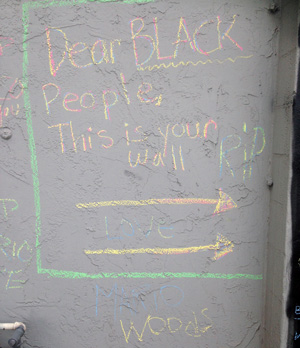 Dear BLACK
People,
This is your
wall
RIP
Love
Woods